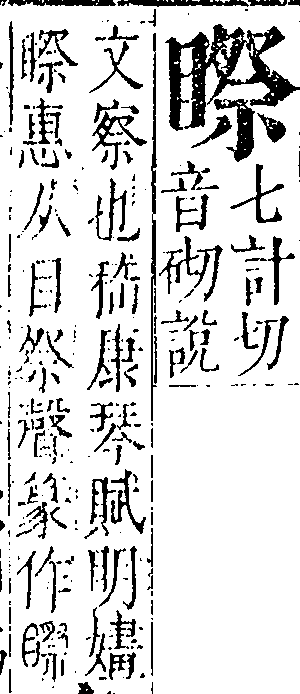 䁟
七計切
音砌說
文察也嵇康琴賦明嫿
䁟惠从目祭聲篆作䁟